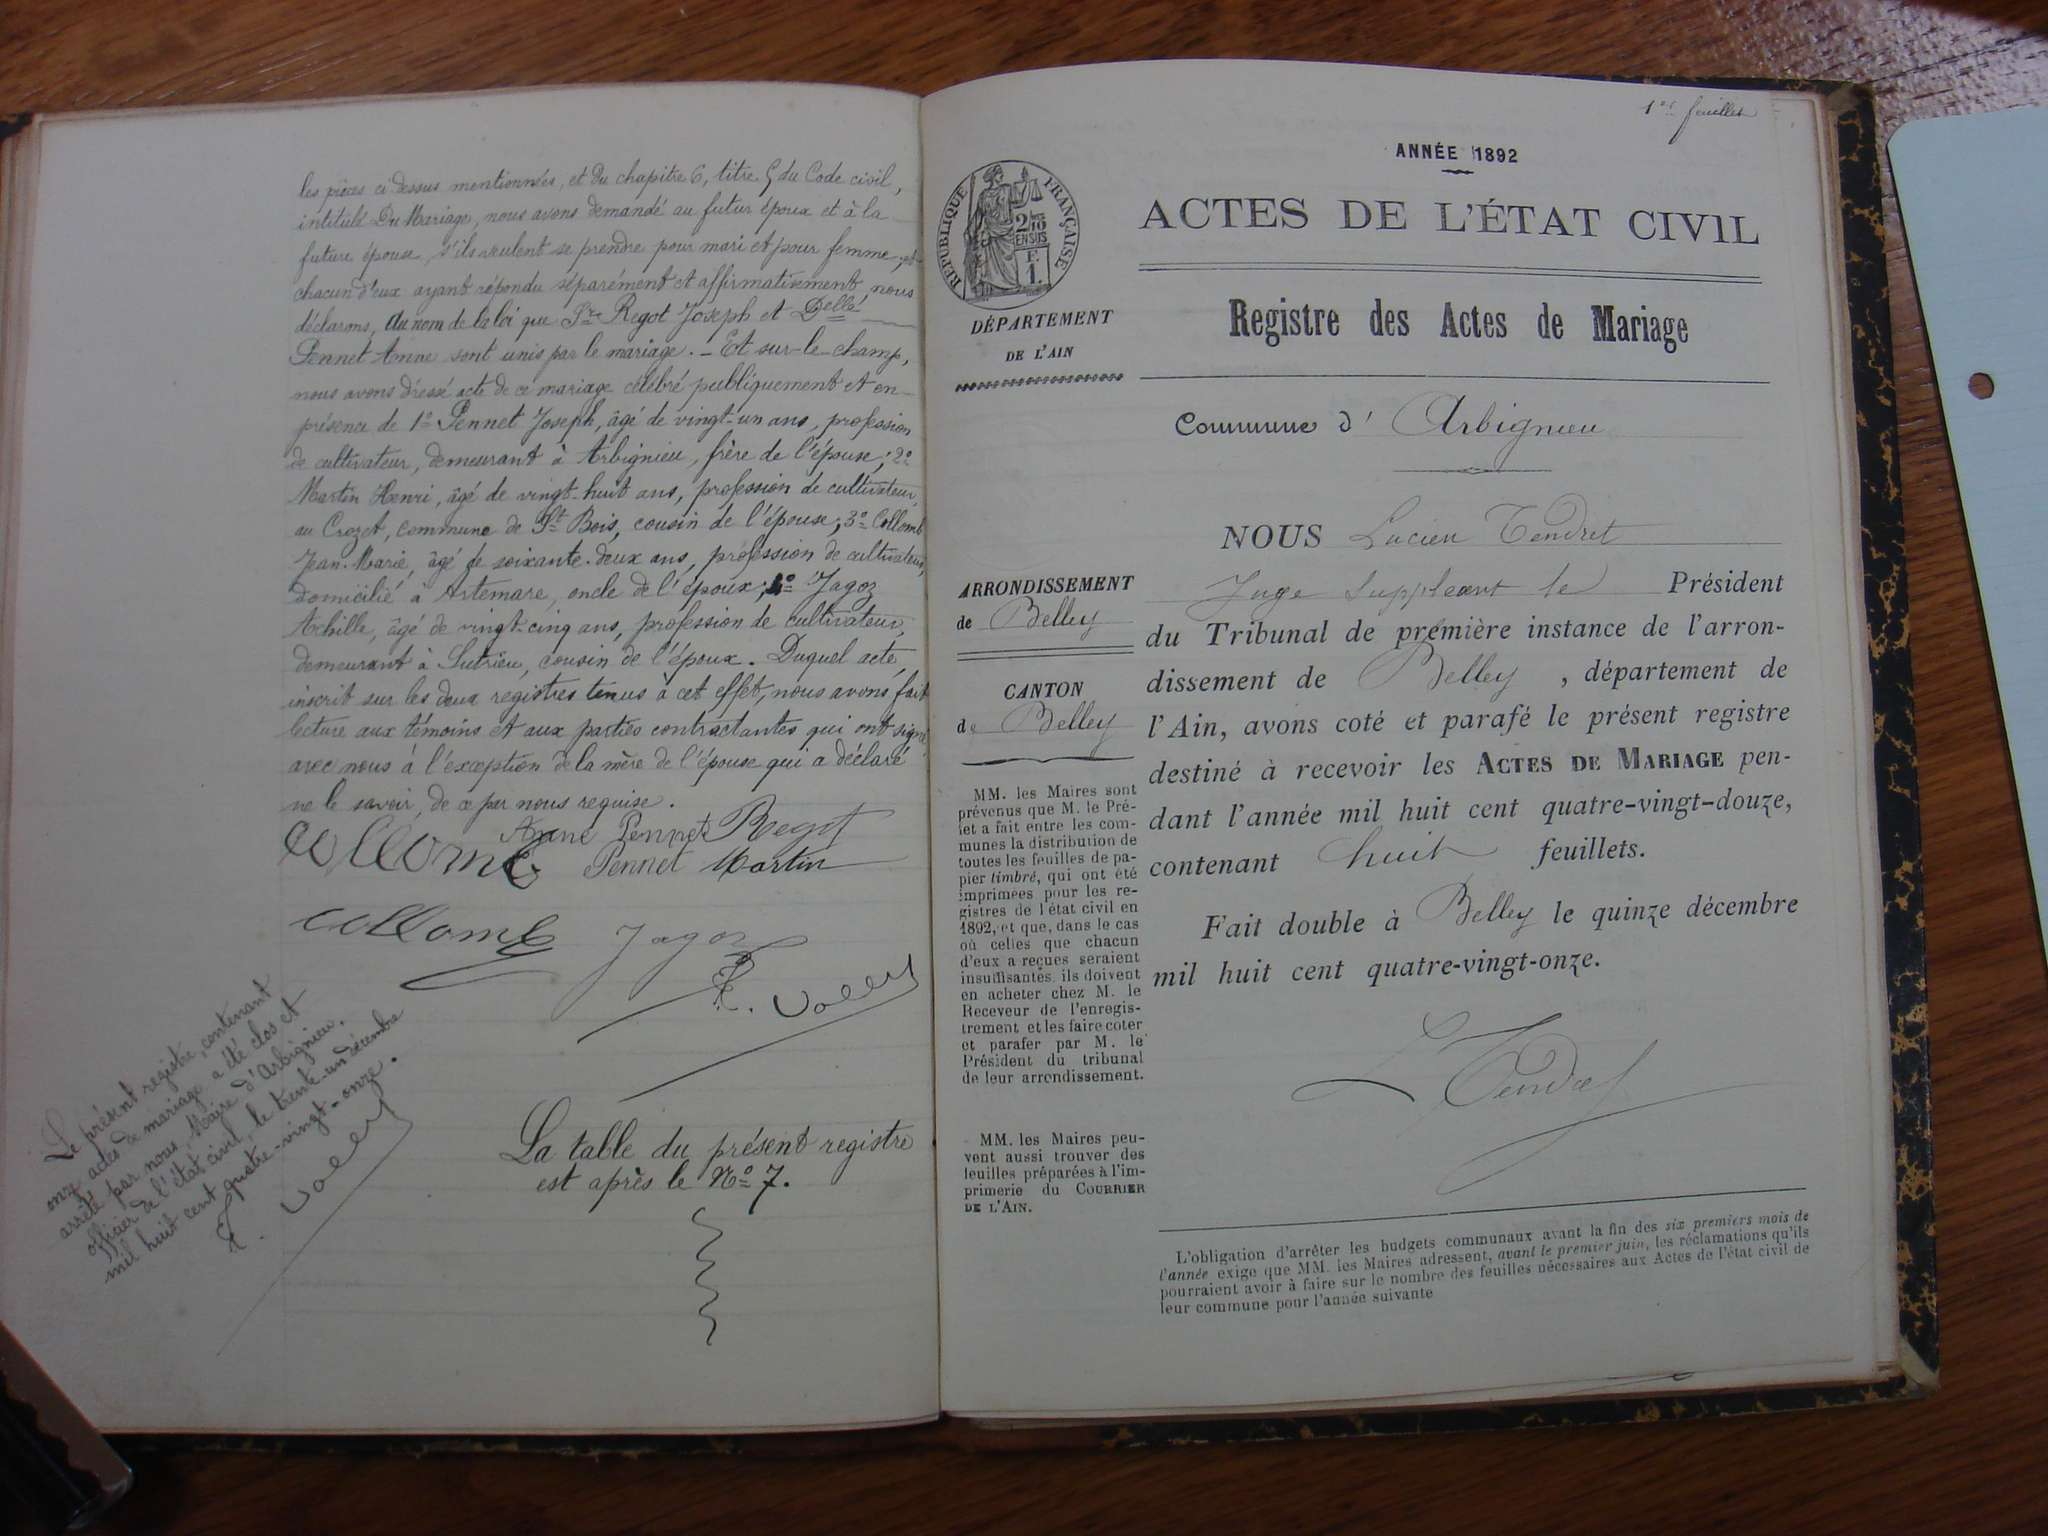 les pièces ci dessus mentionnées, et du chapitre 6, titre 5 du Code civil,
intitulé Du Mariage, nous avons demandé au futur époux et à la
future épouse s'ils veulent se prendre pour mari et pour femme, et
chacun d'eux ayant répondu séparément et affirmativement, nous
déclarons, au nom de la loi que Sr Regot Joseph et Delle
Pennet Anne sont unis par le mariage. - Et sur-le-champ,
nous avons dressé acte de ce mariage célébré publiquement et en
présence de 1o Pennet Joseph, âgé de vingt-un ans, profession
de cultivateur, demeurant à Arbignieu, frère de l'épouse; 2o
Martin Henri, âgé de vingt-huit ans, profession de cultivateur,
au Crozet, commune de St Bois, cousin de l'épouse; 3o Collomb
Jean-Marie, âgé de soixante-deux ans, profession de cultivateur,
domicilié à Artemare, oncle de l'époux; 4o Jagoz
Achille, âgé de vingt-cinq ans, profession de cultivateur,
demeurant à Sutrieu, cousin de l'époux. Duquel acte,
inscrit sur les deux registres tenus à cet effet, nous avons fait
lecture aux témoins et aux parties contractantes qui ont signé
avec nous à l'exception de la mère de l'épouse qui a déclaré
ne le savoir, de ce par nous requise.
Anne Pennet Regot
Collomb Pennet Martin
Collomb Jagoz
Le présent registre, contenant
onze actes de mariage a été clos et
arrêté par nous, Maire d'Arbignieu,
officier de l'état civil, le trente-un décembre
mil huit cent quatre-vingt-onze.
La table du présent registre
est après le No 7.
1er feuillet
ANNÉE 1892
ACTES DE L'ÉTAT CIVIL
RÉPUBLIQUE FRANÇAISE
2/10
EN SUS
F.
1.
DÉPARTEMENT
DE L'AIN
Registre des Actes de Mariage
Commune d' Arbignieu
NOUS Lucien Tendret
Juge Suppléant le Président
du Tribunal de première instance de l'arron-
dissement de Belley, département de
l'Ain, avons coté et parafé le présent registre
destiné à recevoir les ACTES DE MARIAGE pen-
dant l'année mil huit cent quatre-vingt-douze,
contenant huit feuillets.
Fait double à Belley le quinze décembre
mil huit cent quatre-vingt-onze.
L Tendret
ARRONDISSEMENT
de Belley
CANTON
de Belley
MM. les Maires sont
prévenus que M. le Pré-
fet a fait entre les com-
munes la distribution de
toutes les feuilles de pa-
pier timbré, qui ont été
imprimées pour les re-
gistres de l'état civil en
1892, et que, dans le cas
où celles que chacun
d'eux a reçues seraient
insuffisantes, ils doivent
en acheter chez M. le
Receveur de l'enregis-
trement et les faire coter
et parafer par M. le
Président du tribunal
de leur arrondissement.
MM. les Maires peu-
vent aussi trouver des
feuilles préparées à l'im-
primerie du COURRIER
DE L'AIN.
L'obligation d'arrêter les budgets communaux avant la fin des six premiers mois de
l'année exige que MM. les Maires adressent, avant le premier juin, les réclamations qu'ils
pourraient avoir à faire sur le nombre des feuilles nécessaires aux Actes de l'état civil de
leur commune pour l'année suivante